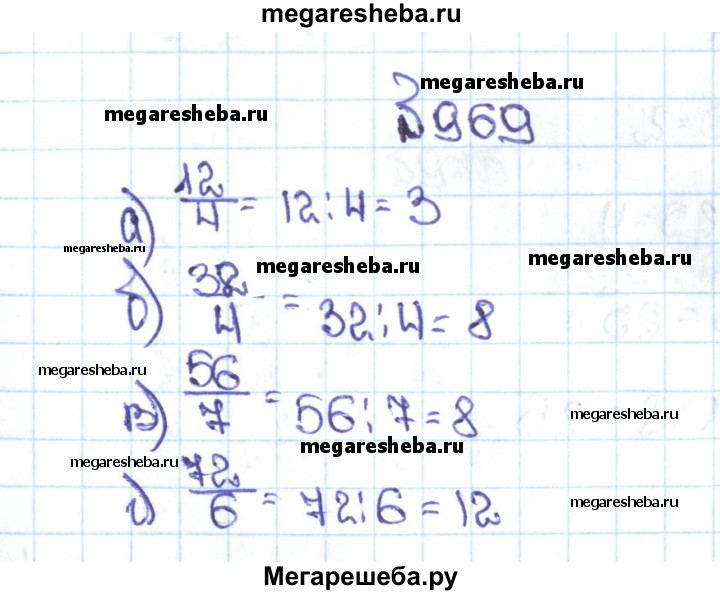 megaresheba.ru
megaresheba.ru
megaresheba.ru
№969
а) 12/4 = 12:4=3
megaresheba.ru
megaresheba.ru
megaresheba.ru
б) 32/4 = 32:4=8
megaresheba.ru
в) 56/7 = 56:7=8
megaresheba.ru
megaresheba.ru
megaresheba.ru
г) 72/6 = 72:6=12
megaresheba.ru
Мегарешеба.ру